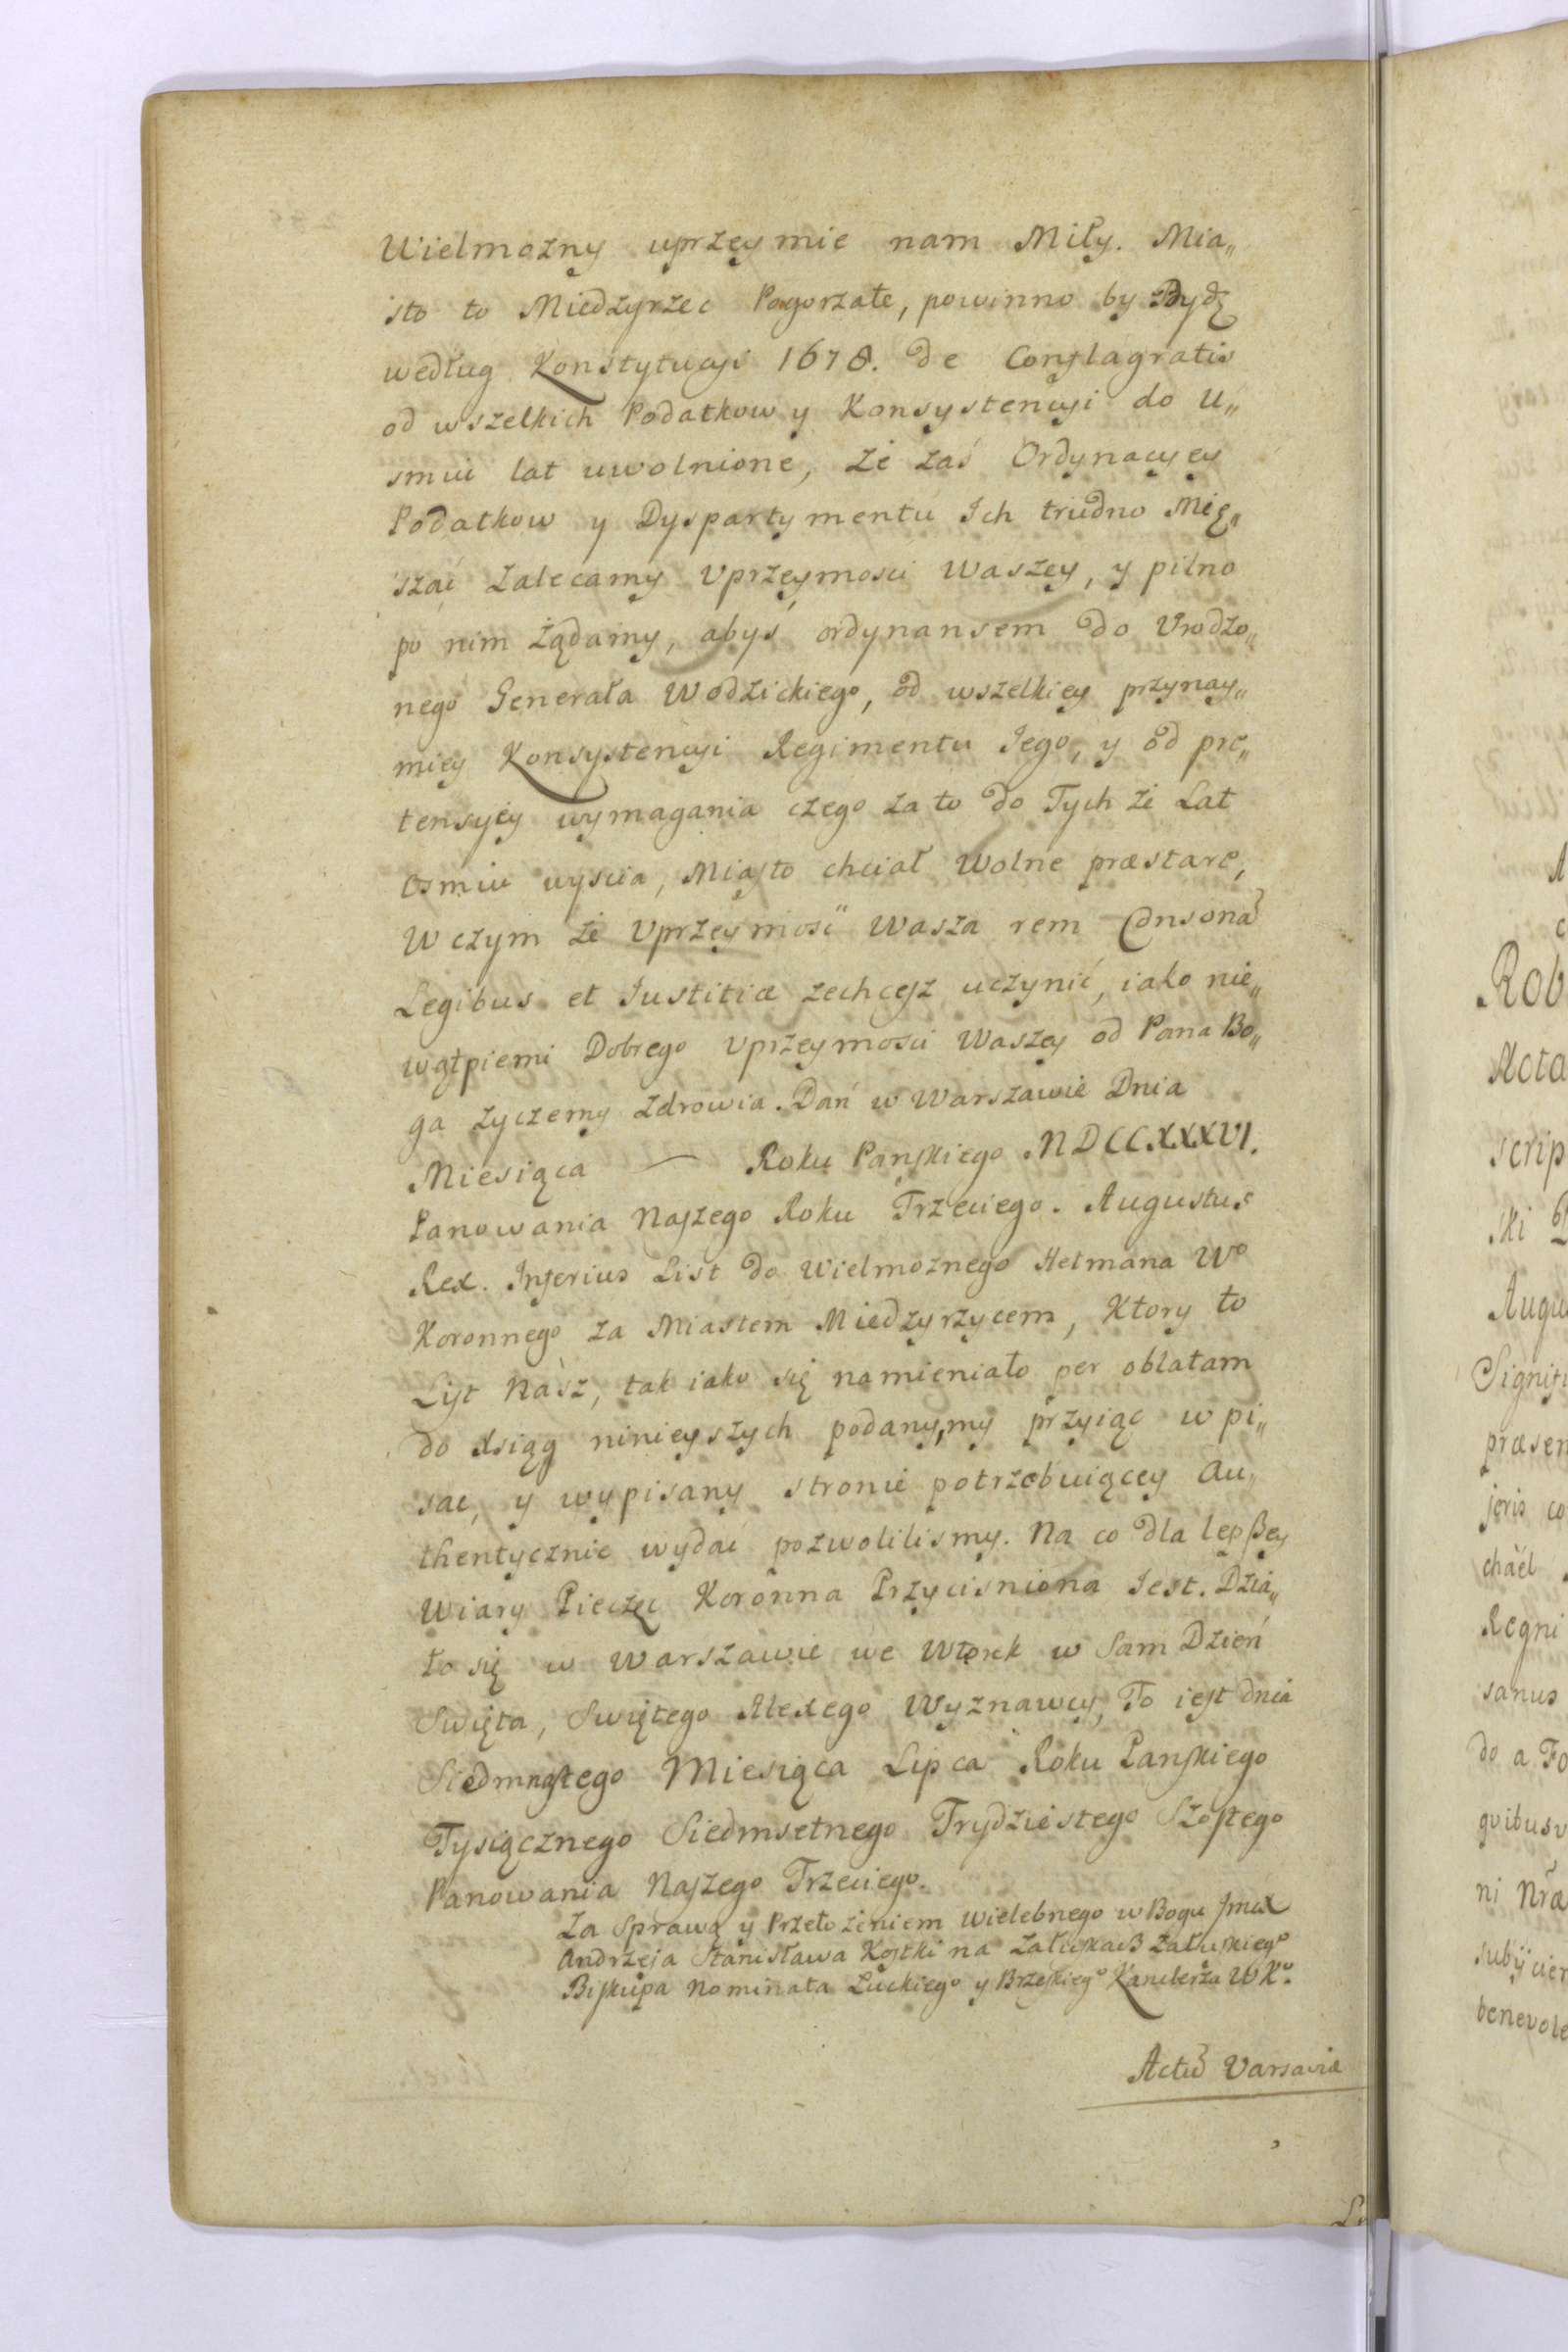 Wielmozny uprzeymie nam Miły. Mia„
sto to Miedzyrzec Pogorzałe, powinno by Bydz
według Konstytucyi 1678. de Conflagratis
od wszelkich Podatkow y Konsystencyi do U„
smiu lat uwolnione, Ze zaś Ordynacyey
Podatkow y Dyspartymentu Ich trudno Mię„
szać Zalecamy Vprzeymosci Waszey, y pilno
po nim żądamy, abyś ordynansem do Vrodzo„
nego Generała Wodzickiego, od wszelkiey przynay„
miey Konsystencyi Regimentu Iego, y od pre„
tensyey wymagania czego za to do Tych że Lat
Osmiu wyscia, Miasto chciał Wolne præstare,
W czym że Vprzeymość Wasza rem Consona
Legibus et Iustitiæ zechcesz uczynić, iako nie„
wątpiemi Dobrego Vprzeymosci Waszey od Pana Bo„
ga zyczemy zdrowia. Dań w Warszawie Dnia
Miesiąca — Roku Panskiego MDCCXXXVI.
Panowania Naszego Roku Trzeciego. Augustus
Rex. Inferius List do Wielmoznego Hetmana Wo
Koronnego za Miastem Miedzyrzycem, Ktory to
List Nasz, tak iako się namieniało per oblatam
do Xsiąg ninieyszych podany, my przyiąc wpi„
sac, y wypisany stronie potrzebuiącey Au„
thentycznie wydać pozwolilismy. Na co dla lepßey
Wiary Pieczęc Koronna Przycisniona Iest. Dzia„
ło się w Warszawie we Wtorek w Sam Dzień
Swięta, Swiętego Alexego Wyznawcy, To iest dnia
Siedmnastego Miesiąca Lipca Roku Panskiego
Tysiącznego Siedmsetnego Trydziestego Szostego
Panowania Naszego Trzeciego.
Za Sprawą y Przełożeniem Wielebnego w Bogu Jmcx
Andrzeja Stanisława Kostki na Załuskaß Załuskiego
Biskupa Nominata Luckiego y Brzeskiego Kanclerza WKo.
Actu Varsaviæ
Rob
Acta
scrip
ski
Augu
Signifi
præsen
joris co
chaël
Regni
sanus
do a Fo
quibusv
ni Nræ
subijcien
benevole